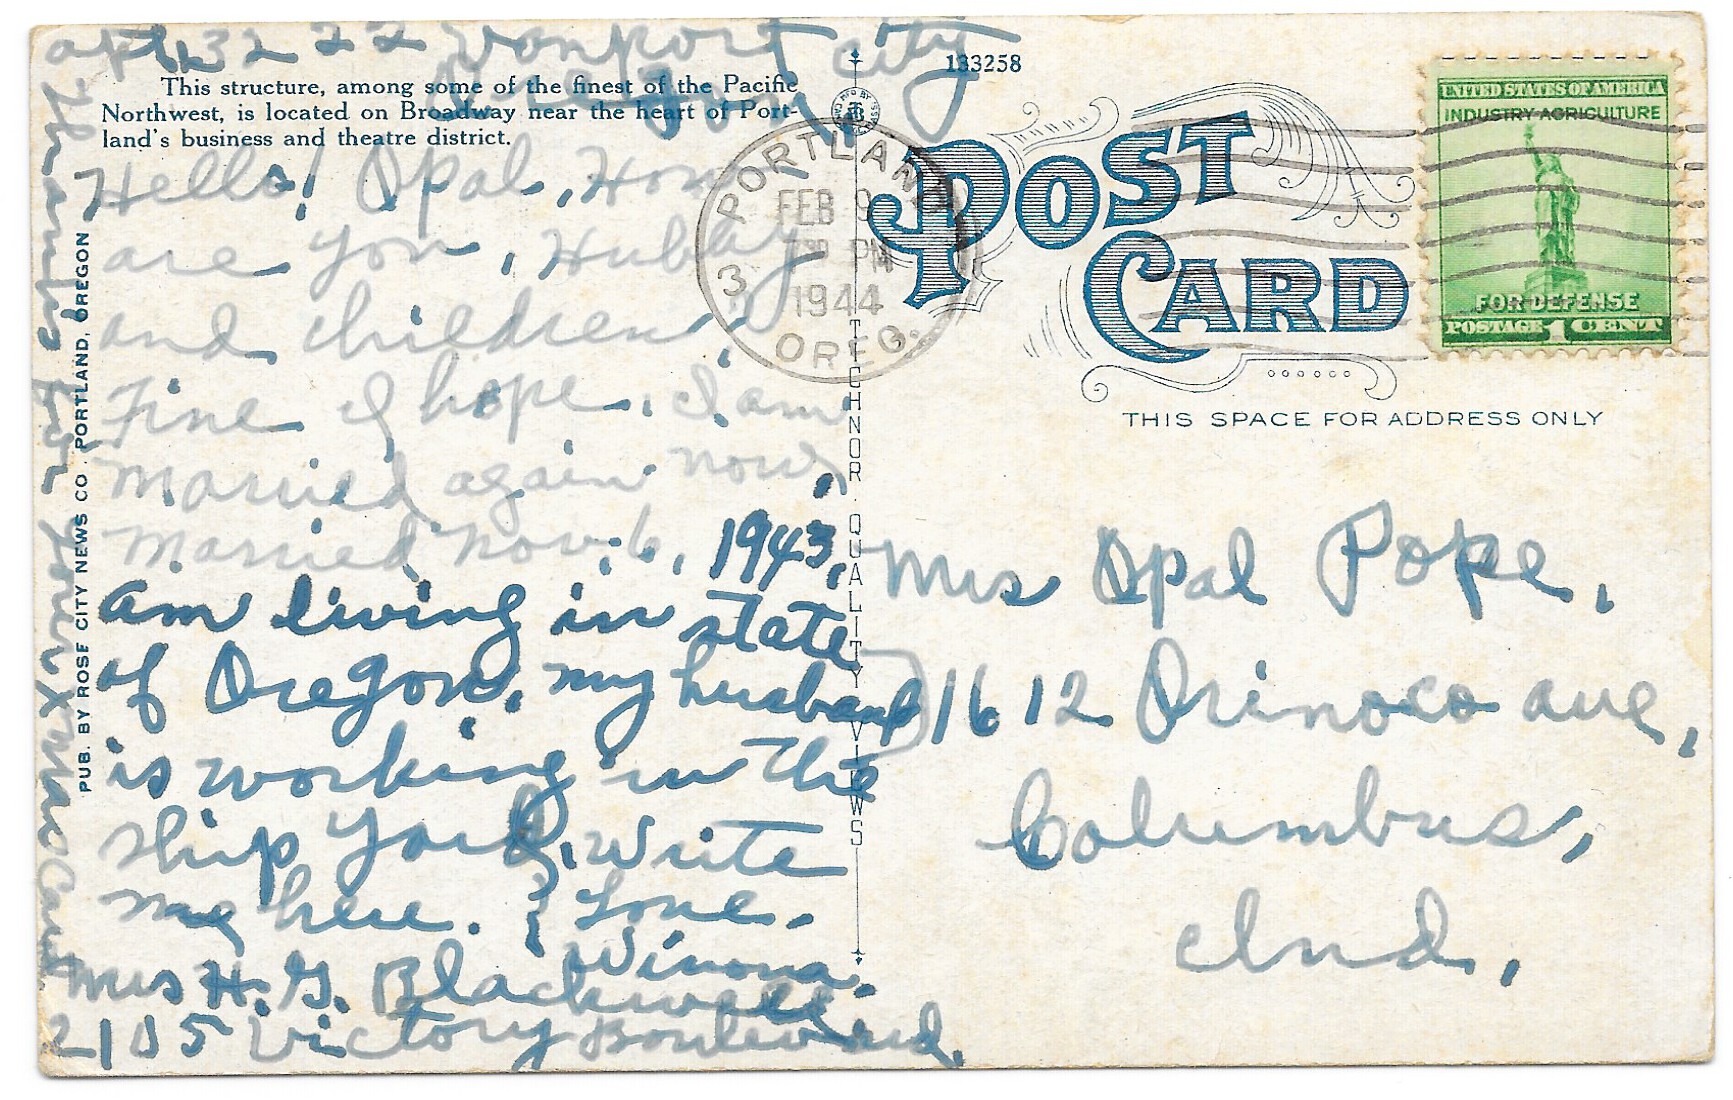 apt, 32 22 Vanport City
Oregon
This structure, among some of the finest of the Pacific
Northwest, is located on Broadway near the heart of Port-
land's business and theatre district.
Hello! Opal, How
are you, Hubby
and children,
Fine I hope. I am
Married again now,
Married Nov. 6, 1943,
am living in state
of Oregon, my husband
is working in the
ship yard. Write
me here. Love,
Winona.
Mrs H. G. Blackwell
2105 Victory Boulevard.
Thanks for your Xmas Card
PUB. BY ROSE CITY NEWS CO. PORTLAND, OREGON
TECHNOR QUALITY VIEWS
133258
POST CARD
PORTLAND
FEB 9
PM
1944
3
OREG.
UNITED STATES OF AMERICA
INDUSTRY-AGRICULTURE
FOR DEFENSE
POSTAGE 1 CENT
THIS SPACE FOR ADDRESS ONLY
Mrs Opal Pope,
1612 Orinoco ave,
Columbus,
Ind.